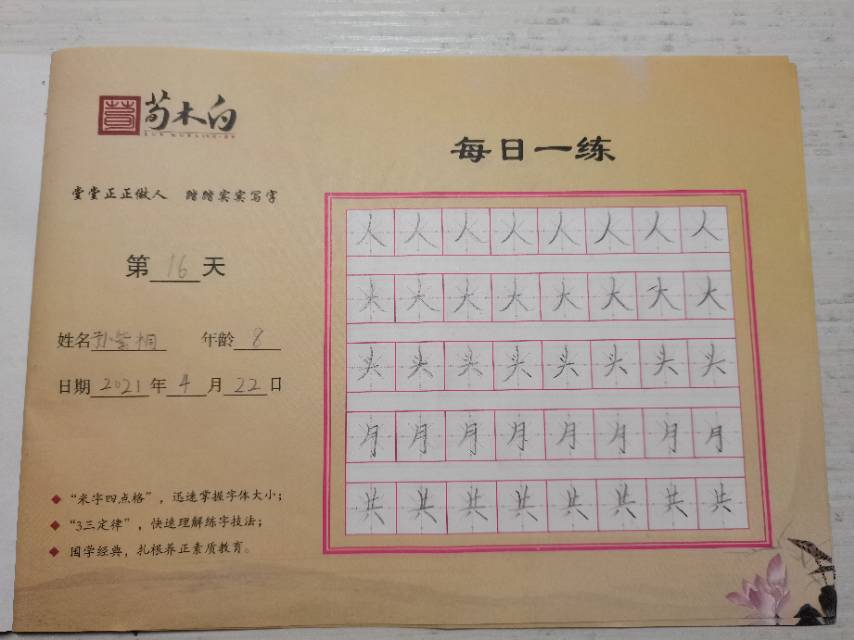 荀木白
每日一练
堂堂正正做人 踏踏实实写字
第16天
姓名孙紫桐 年龄8
日期2021年4月22日
◆ “米字四点格”，迅速掌握字体大小；
◆ “3三定律”，快速理解练字技法；
◆ 国学经典，扎根养正素质教育。
人人人人人人人人
大大大大大大大大
头头头头头头头头
月月月月月月月月
共共共共共共共共